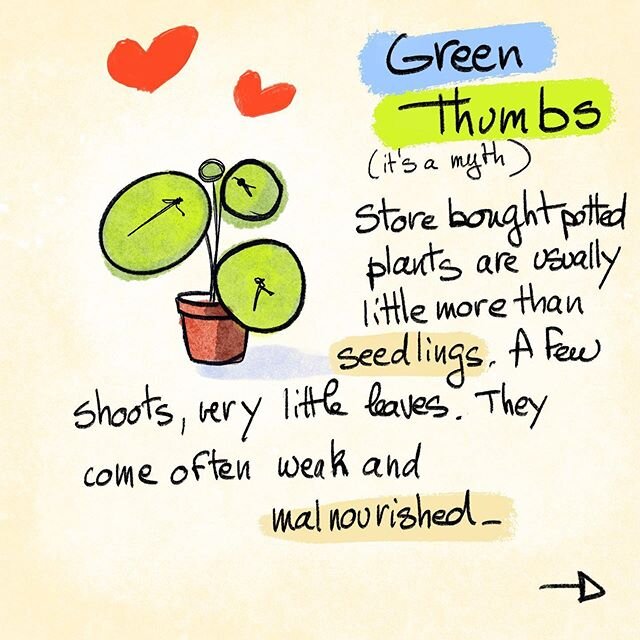 Green
Thumbs
(it's a myth)
Store bought potted
plants are usually
little more than
seedlings. A few
shoots, very little leaves. They
come often weak and
malnourished_